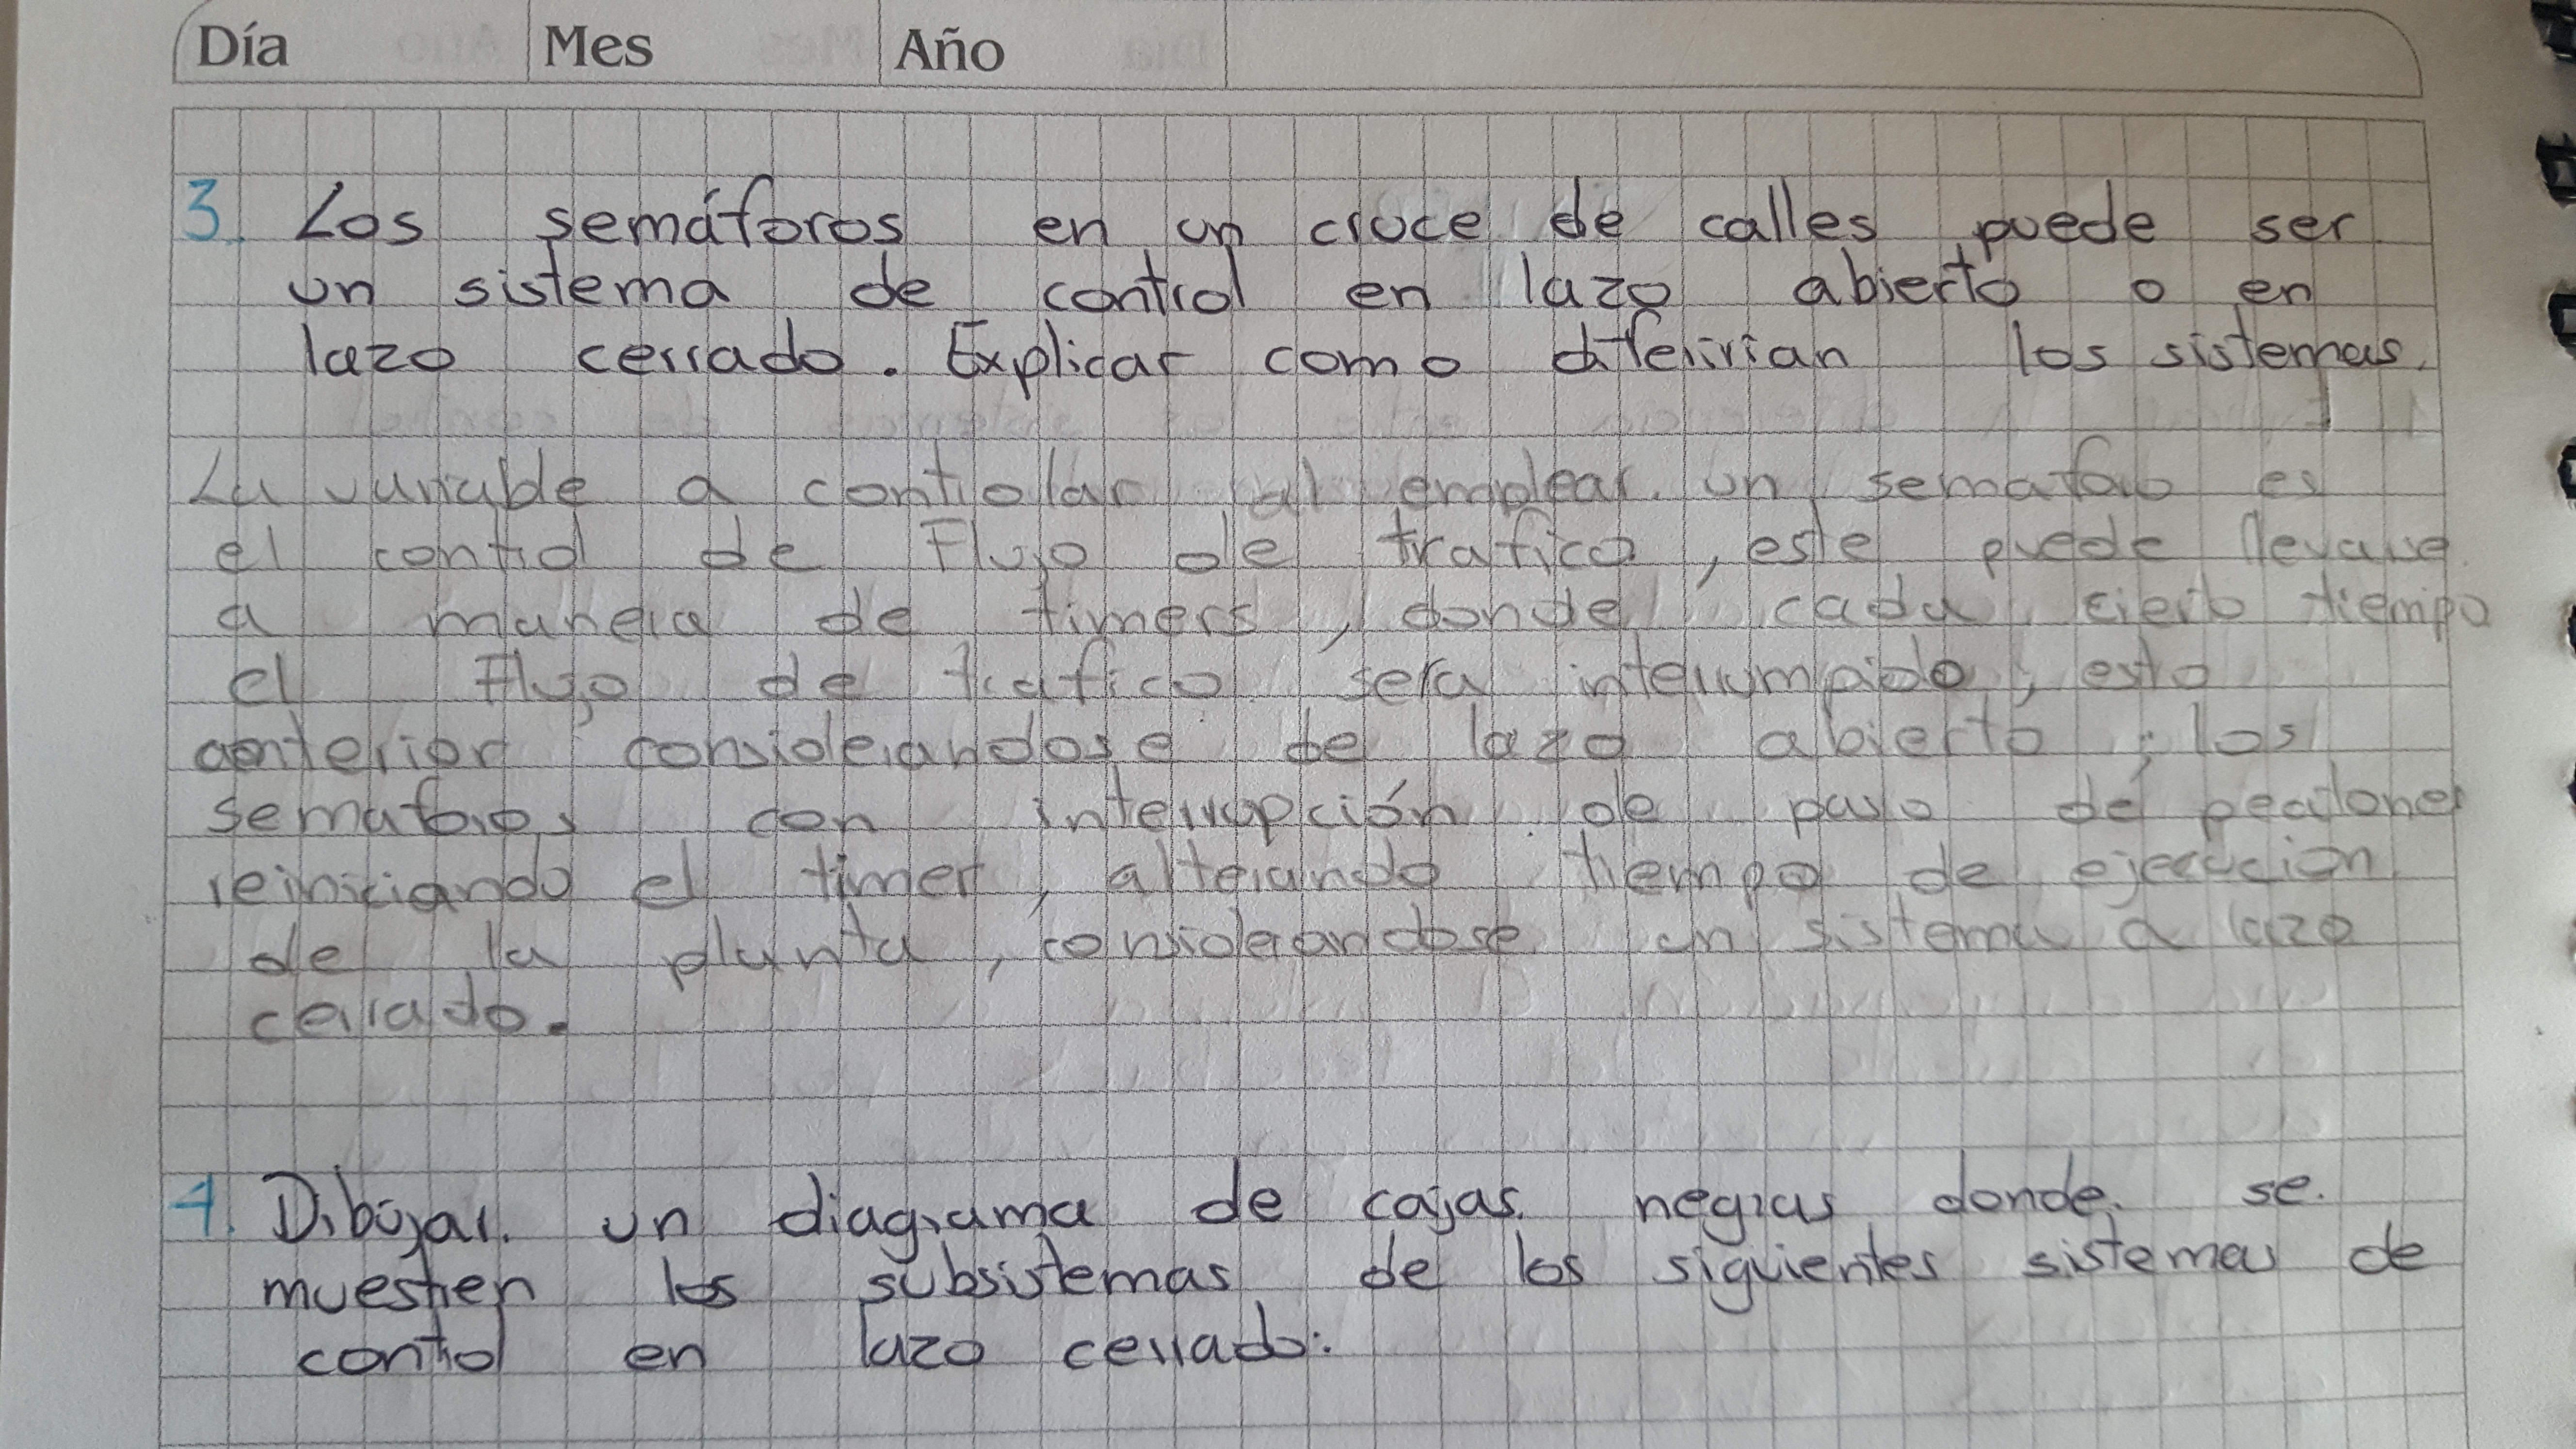 Día Mes Año
3. Los semáforos en un cruce de calles puede ser
un sistema de control en lazo abierto o en
lazo cerrado. Explicar como diferirían los sistemas.
La variable a controlar al emplear un semáfoo es
el control de Flujo de trafico, este puede llevarse
a manera de timers, donde cada cierto tiempo
el flujo de trafico sera interrumpido, esto
anterior considerandose de lazo abierto; los
semaforos con interrupción de paso de peatones
reiniciando el timer, alterando tiempo de ejecución
de la planta, considerandose un sistema a lazo
cerrado.
4. Dibujar un diagrama de cajas negras donde se
muestren los subsistemas de los siguientes sistemas de
control en lazo cerrado: